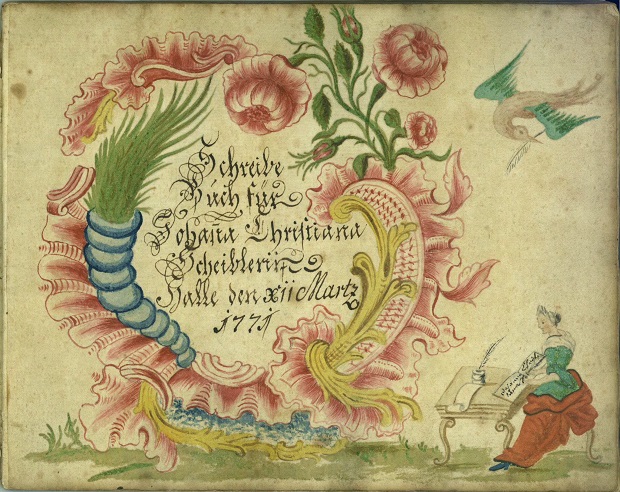 Schreibe
Buch für
Johaña Christiana
Scheiblerin
Halle den XII Martz
1771